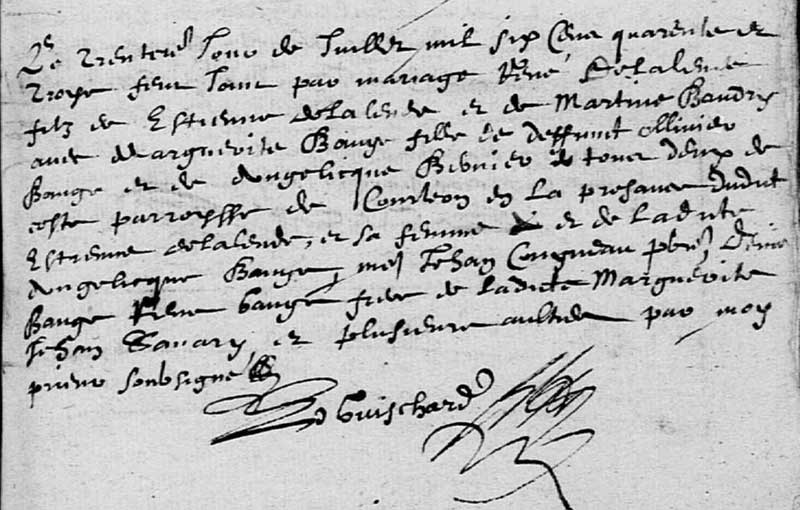 Le trenteies Jour de Juillet mil six Cens quarente et
troys feut Joint par mariage René Delalende
filz de Estienne delalende et de Martine Baudry
avec Marguerite Bauge fille de deffunct Ollivier
Bauge et de Angelicque Besnier tous deux de
ceste parroysse de Courleon en la presance dudict
Estienne delalende, et sa femme et de Ladicte
Angelicque Bauge, mes Jehan Congneau pbre, Denis
Bauge Rene bauge frere de Ladicte Marguerite
Jehan Savary, et plusieurs aultres par moy
prieur soubsigné
Guischard